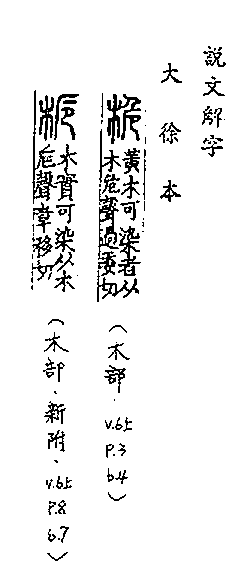 說文解字
大徐本
桅
黃木可染者从
木危聲過委切
(木部.v.6上
P.3
b.4)
梔
木實可染从木
巵聲章移切
(木部.新附.v.6上
P.8
b.7)